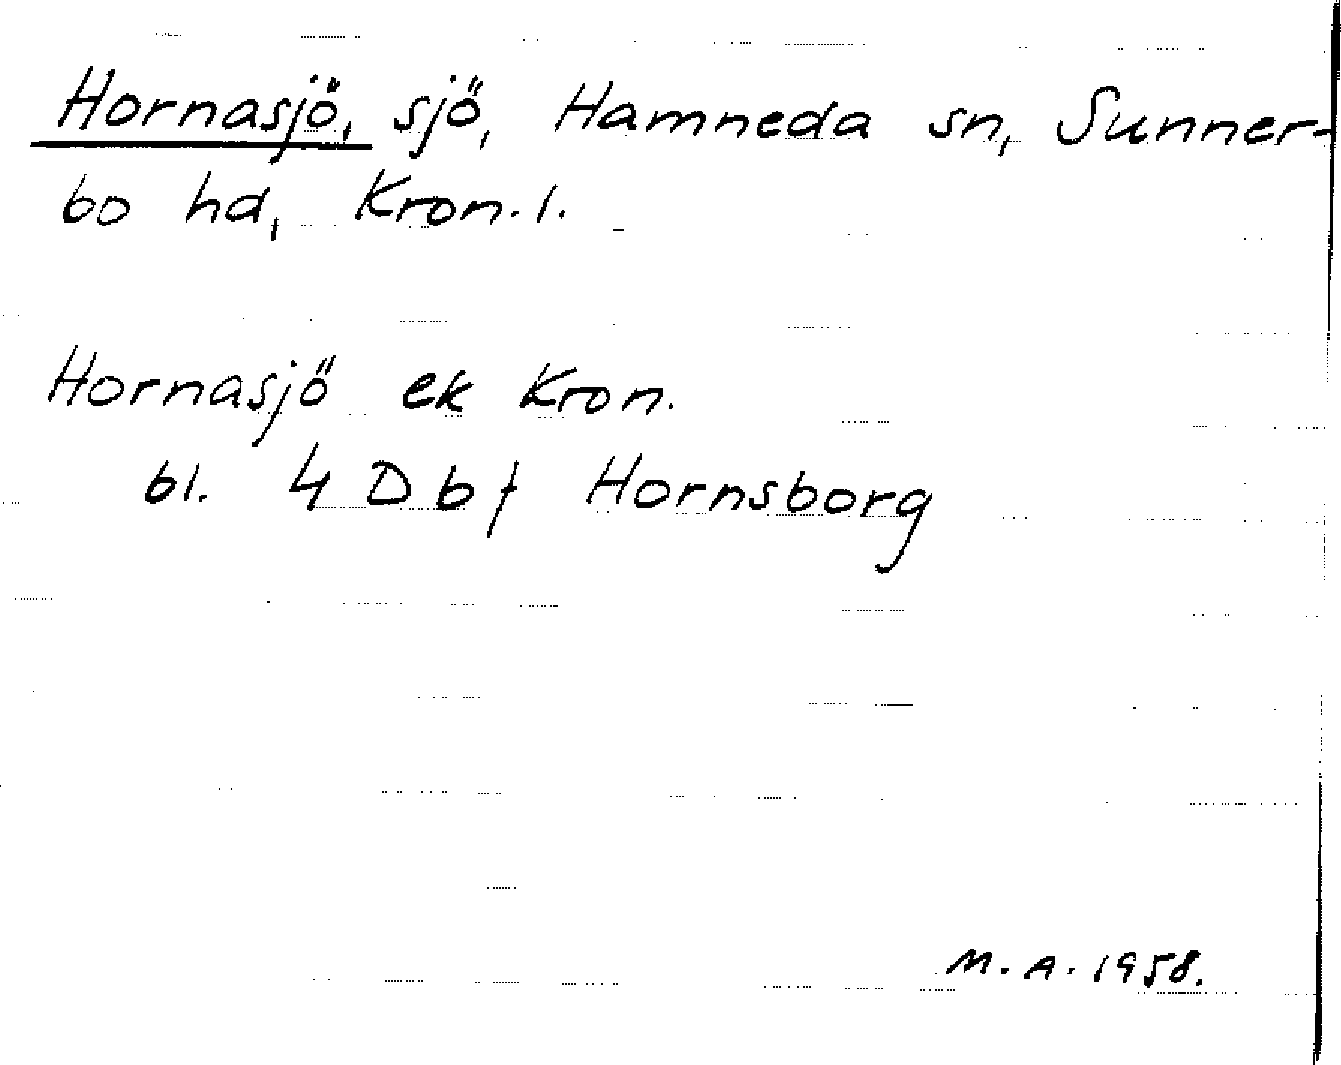 Hornasjö, sjö, Hamneda sn, Sunner-
bo hd, Kron. l.
Hornasjö ek Kron.
bl. 4 D b f Hornsborg
M. A. 1958.